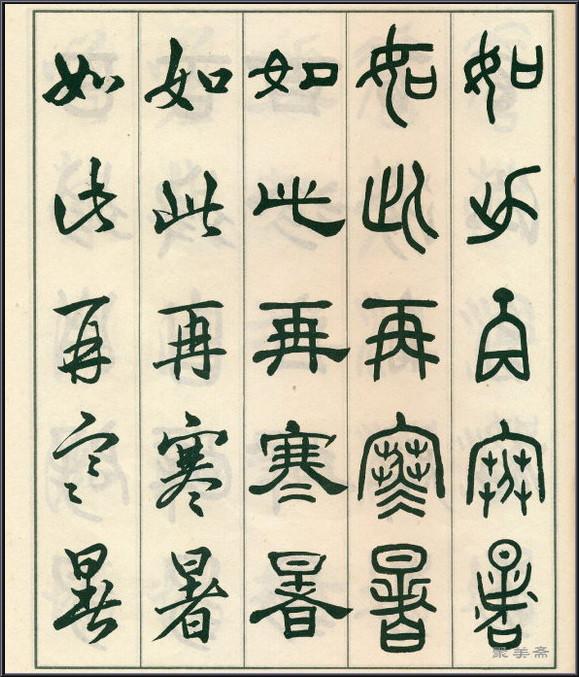 如此再寒暑
如此再寒暑
如此再寒暑
如此再寒暑
如此再寒暑
聚美斋